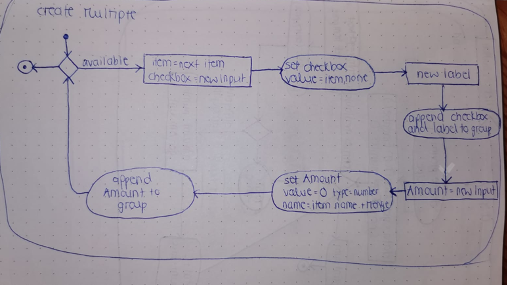 create Multiple
available
item=next item
checkbox=new input
set checkbox
value=item,none
new label
append checkbox
and label to group
Amount=new input
set Amount
value=0 type=number
name=item name +
append
Amount to
group